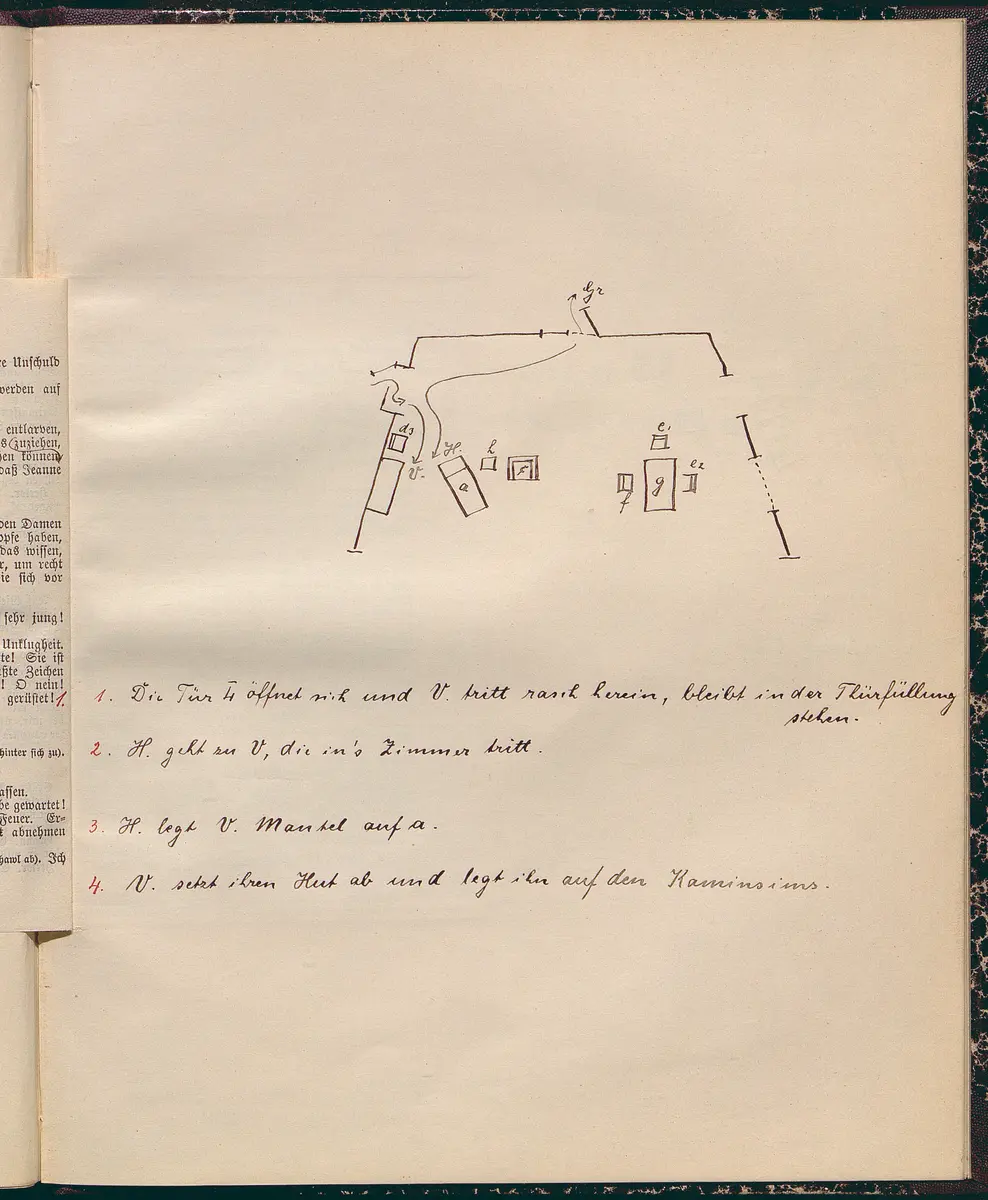 re Unschuld
werden auf
entlarven,
s zuziehen,
hen können,
daß Jeanne
den Damen
opfe haben,
das wissen,
r, um recht
ie sich vor
sehr jung!
Unklugheit.
te! Sie ist
ßte Zeichen
! O nein!
gerüstet! 1.
hinter sich zu).
assen.
be gewartet!
Feuer. Er=
t abnehmen
hawl ab). Ich
Gr
d3
V.
H.
a
h
e1
f
g
e2
1. Die Tür 4 öffnet sich und V tritt rasch herein, bleibt in der Thürfüllung
stehen.
2. H. geht zu V, die in's Zimmer tritt.
3. H. legt V. Mantel auf a.
4. V. setzt ihren Hut ab und legt ihn auf den Kaminsims.